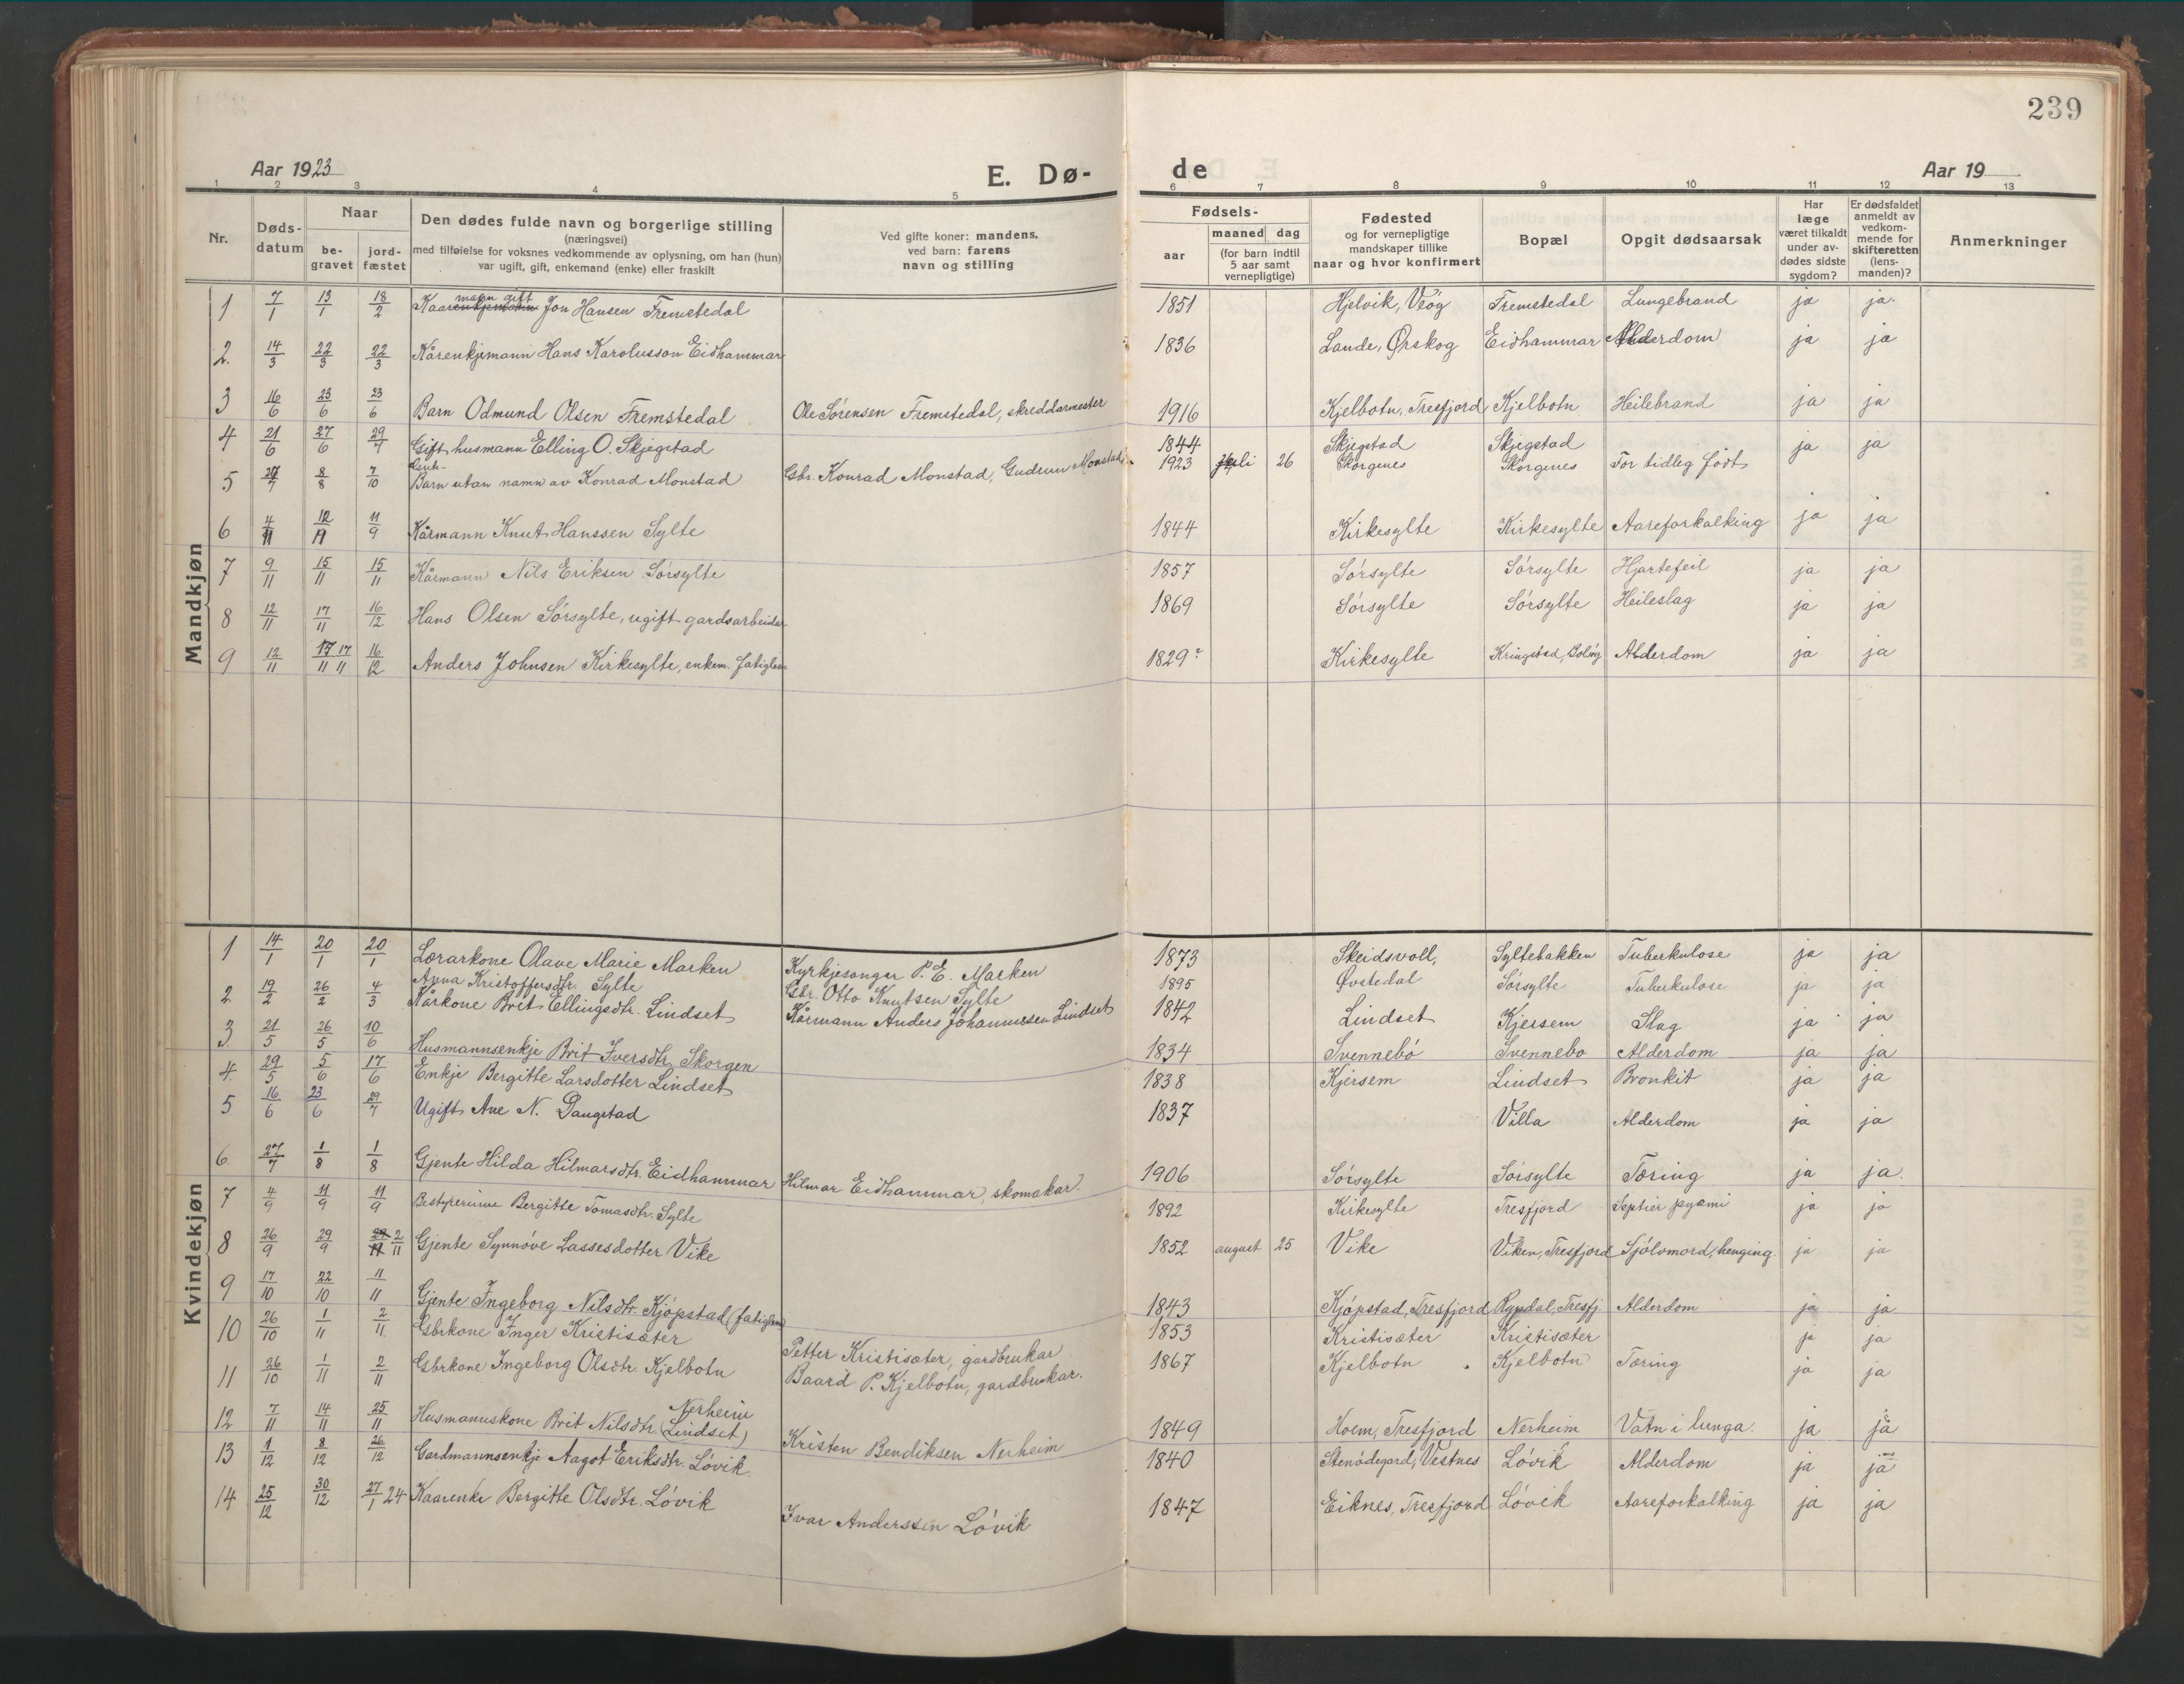 239
Aar 1923 E. Dø- de Aar 19
1 2 3 4 5 6 7 8 9 10 11 12 13
Nr. Døds-datum Naar be-gravet jord-fæstet Den dødes fulde navn og borgerlige stilling (næringsvei) med tilføielse for voksnes vedkommende av oplysning, om han (hun) var ugift, gift, enkemand (enke) eller fraskilt Ved gifte koner: mandens, ved barn: farens navn og stilling Fødsels- aar maaned dag (for barn indtil 5 aar samt vernepligtige) Fødested og for vernepligtige mandskaper tillike naar og hvor konfirmert Bopæl Opgit dødsaarsak Har læge været tilkaldt under av-dødes sidste sygdom? Er dødsfaldet anmeldt av vedkom-mende for skifteretten (lens-manden)? Anmerkninger
Mandkjøn
1 7/1 13/1 18/2 Kaarmann gift Jon Hansen Fremstedal 1851 Hjelvik, Veöy Fremstedal Lungebrand ja ja.
2. 14/3 22/3 22/3 Kårenkjemann Hans Karolusson Eidhammar 1836 Lande, Ørskog Eidhammar Alderdom ja ja
3 16/6 23/6 23/6 Barn Odmund Olsen Fremstedal Ole Sørensen Fremstedal, skreddarmester 1916 Kjelbotn, Tresfjord Kjelbotn Heilebrand ja ja
4 21/6 27/6 29/7 Gift husmann Elling O. Skjegstad 1844 Skjegstad Skjegstad ja ja
5 27/7 8/8 7/10 Barn utan namn av Konrad Monstad Gbr. Konrad Monstad, Gudrun Monstad 1923 juli 26 Skorgenes Skorgenes For tidleg født
6 4/11 12/11 11/9 Kårmann Knut Hanssen Sylte 1844 Kirkesylte Kirkesylte Aareforkalking ja ja
7 9/11 15/11 15/11 Kårmann Nils Eriksen Sörsylte 1857 Sörsylte Sörsylte Hjartefeil ja ja
8 12/11 17/11 16/12 Hans Olsen Sörsylte, ugift gardsarbeidar 1869 Sörsylte Sörsylte Heileslag ja ja
9 12/11 17/11 17/11 16/12 Anders Johnsen Kirkesylte, enkem. fatiglem 1829? Kirkesylte Kringstad, Bolsöy Alderdom ja ja
Kvindekjøn
1 14/1 20/1 20/1 Lærarkone Olave Marie Marken Kyrkjesongar P. E. Marken 1873 Skeidsvoll, Syltebakken Tuberkulose ja ja
2 19/2 26/2 4/3 Anna Kristoffersdtr. Sylte Gbr. Otto Knutsen Sylte 1895 Øvstedal Sörsylte Tuberkulose ja ja
3. 21/5 26/5 10/6 Kårkone Brit Ellingsdtr. Lindset Kårmann Anders Johannessen Lindset 1842 Lindset Kjersem Slag ja ja
4. 29/5 5/6 17/6 Husmannsenkje Brit Iversdtr. Skorgen 1834 Svennebö Svennebo Alderdom ja ja
Enkje Bergitte Larsdotter Lindset 1838 Kjersem Lindset Bronkit ja ja
5 16/6 23/6 29/7 Ugift Ane N. Daugstad 1837 Villa Alderdom ja ja
6. 27/7 1/8 1/8 Gjente Hilda Hilmarsdtr. Eidhammar Hilmar Eidhammar, skomakar. 1906 Sörsylte Sörsylte Tæring ja ja.
7 4/9 11/9 11/9 Bestyrerinne Bergitte Tomasdtr. Sylte 1892 Kirkesylte Tresfjord pyæmi ja ja
8 26/9 29/9 2/11 Gjente Synnöve Lassesdotter Vike 1852 august 25 Vike Viken, Tresfjord Sjölvmord, henging ja ja
9 17/10 22/10 11/11 Gjente Ingeborg Nilsdtr. Kjöpstad (fatiglem) 1843 Kjöpstad, Tresfjord Rypdal, Tresfj. Alderdom ja ja
10 26/10 1/11 2/11. Gbrkone Inger Kristisæter Petter Kristisæter, gardbrukar 1853 Kristisæter Kristisæter ja ja
11 26/10 1/11 2/11 Gbrkone Ingeborg Olsdtr. Kjelbotn Baard P. Kjelbotn, gardbrukar. 1867 Kjelbotn Kjelbotn Tæring ja ja
12 7/11 14/11 25/11 Husmannskone Brit Nilsdtr. Nerheim (Lindset) Kristen Bendiksen Nerheim 1849 Hoem, Tresfjord Nerheim Vatn i lunga. ja ja
13 1/12 8/12 26/12 Gardmannsenkje Aagot Eriksdtr. Lövik 1840 Stenödegard, Vestnes Lövik Alderdom ja ja
14 25/12 30/12 27/1 24 Kaarenke Bergitte Olsdtr. Lövik Ivar Anderssen Lövik 1847 Eiknes, Tresfjord Lövik Aareforkalking ja ja